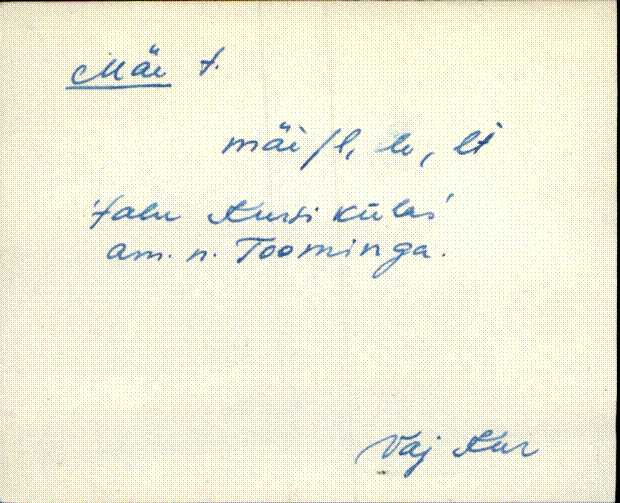 Mäe t.
mäe/l, le, lt
'talu Kursi külas'
am. n. Toominga.
Vaj Kur